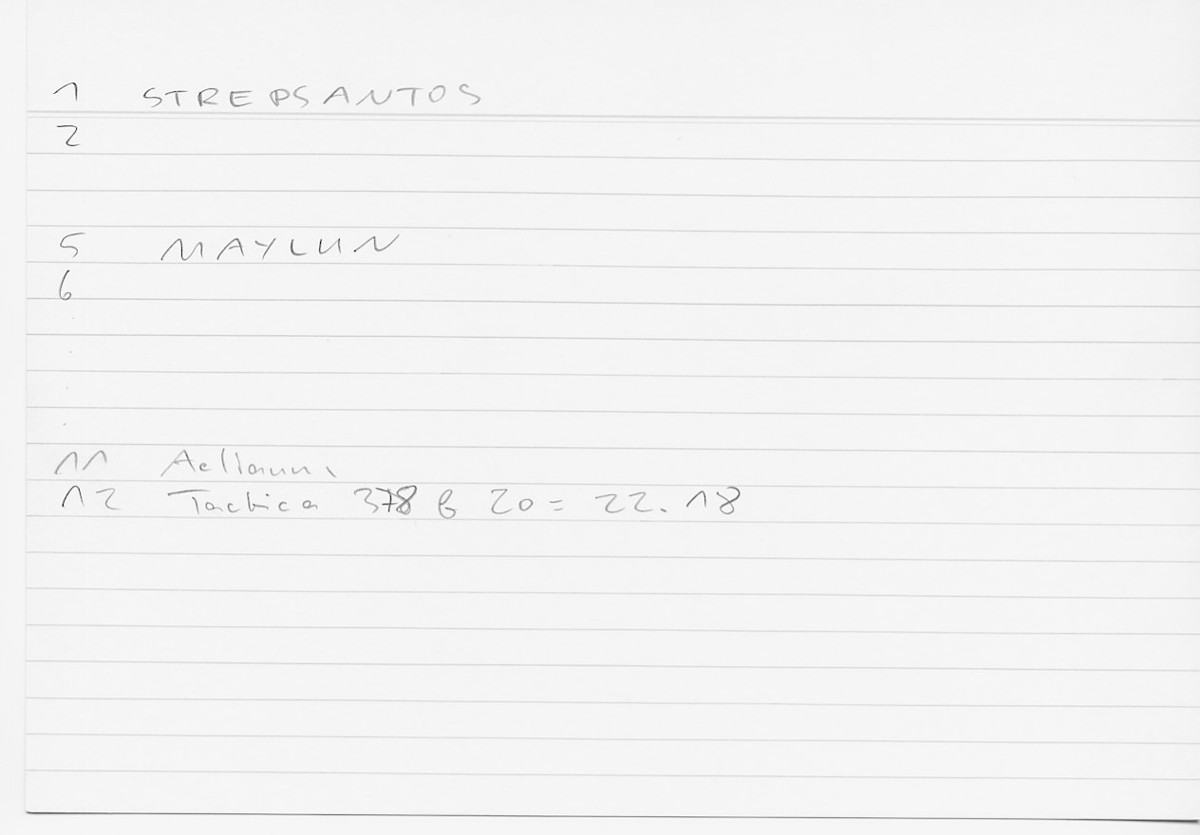 1 STREPSANTOS
2
5 MAYLUN
6
11
12 Tactica 378 b 20 = 22. 18